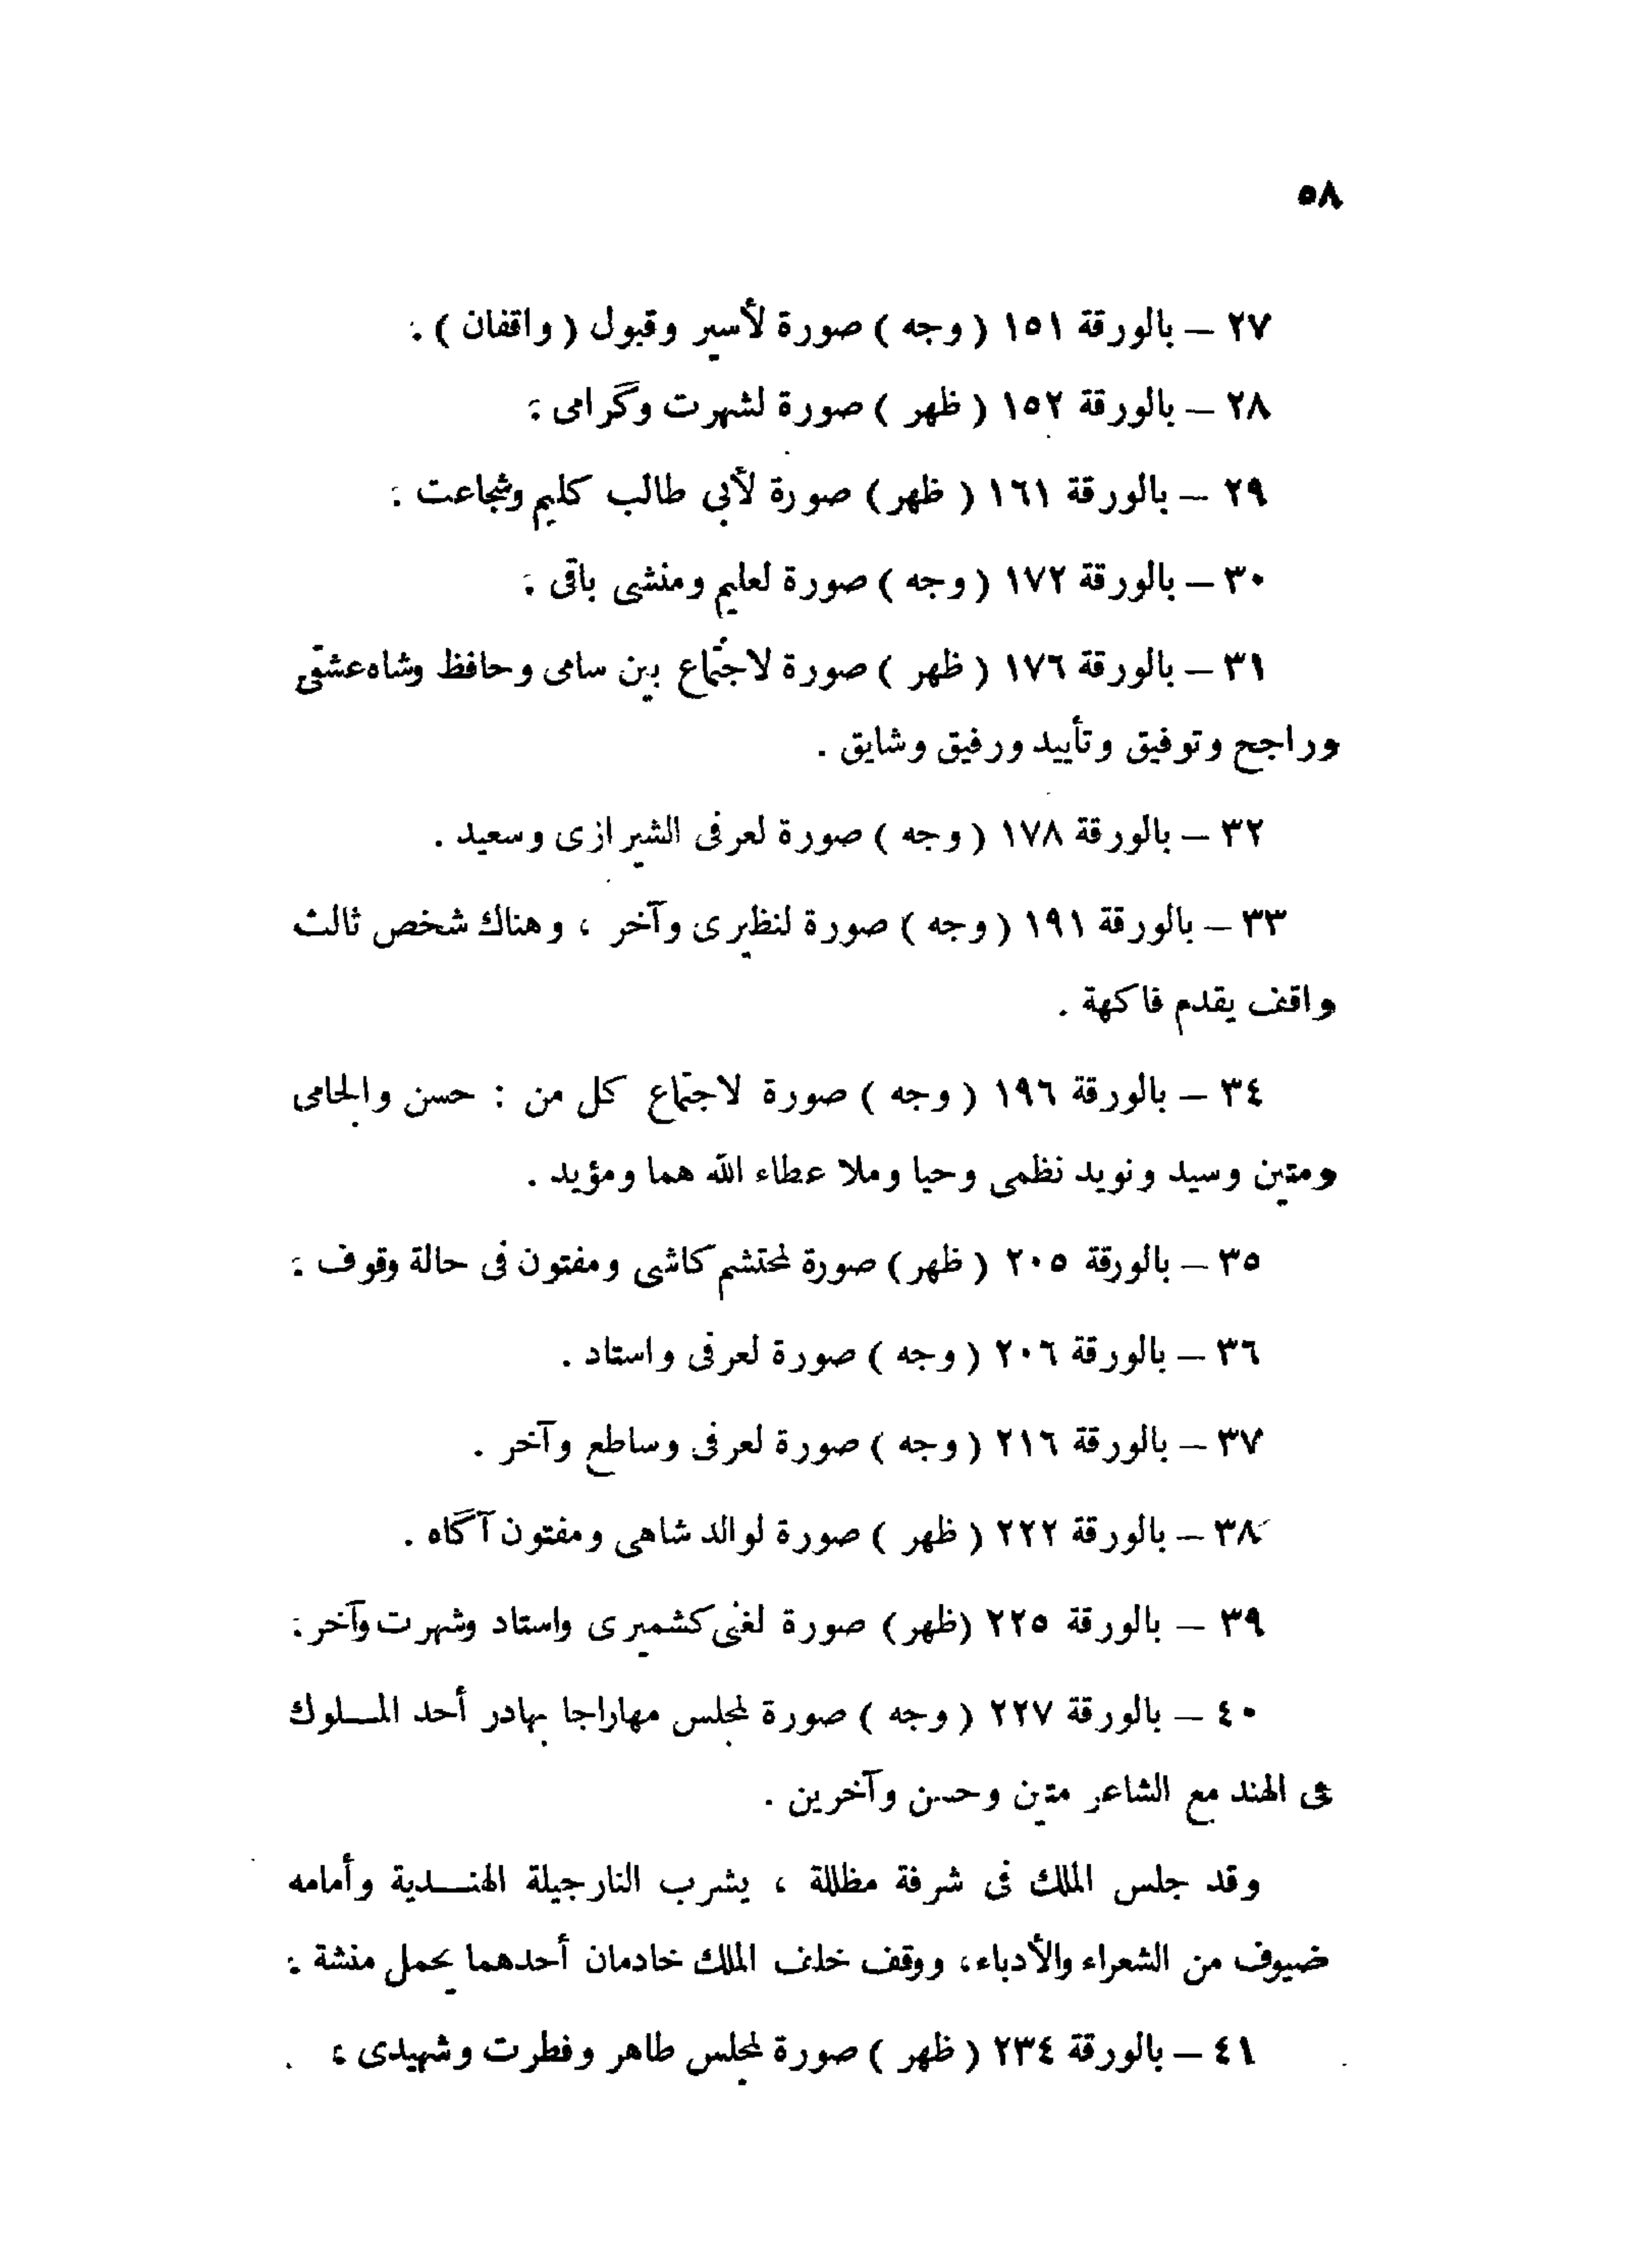 ٥٨
٢٧ — بالورقة ١٥١ ( وجه ) صورة لأسير وقبول ( واقفان ) .
٢٨ — بالورقة ١٥٢ ( ظهر ) صورة لشهرت وگرامى .
٢٩ — بالورقة ١٦١ ( ظهر ) صورة لأبي طالب كليم وشجاعت .
٣٠ — بالورقة ١٧٢ ( وجه ) صورة لعليم ومنشى باقى .
٣١ — بالورقة ١٧٦ ( ظهر ) صورة لاجتماع بين سامى وحافظ وشاه عشقى
وراجح وتوفيق وتأييد ورفيق وشايق .
٣٢ — بالورقة ١٧٨ ( وجه ) صورة لعرفى الشيرازى وسعيد .
٣٣ — بالورقة ١٩١ ( وجه ) صورة لنظيرى وآخر ، وهناك شخص ثالث
واقف يقدم فاكهة .
٣٤ — بالورقة ١٩٦ ( وجه ) صورة لاجتماع كل من : حسن والجامى
ومتين وسيد ونويد نظمى وحيا وملا عطاء الله هما ومؤيد .
٣٥ — بالورقة ٢٠٥ ( ظهر ) صورة لمحتشم كاشى ومفتون فى حالة وقوف .
٣٦ — بالورقة ٢٠٦ ( وجه ) صورة لعرفى واستاد .
٣٧ — بالورقة ٢١٦ ( وجه ) صورة لعرفى وساطع وآخر .
٣٨ — بالورقة ٢٢٢ ( ظهر ) صورة لوالد شاهى ومفتون آگاه .
٣٩ — بالورقة ٢٢٥ (ظهر) صورة لغنى كشميرى واستاد وشهرت وآخر .
٤٠ — بالورقة ٢٢٧ ( وجه ) صورة لمجلس مهاراجا بهادر أحد المـلوك
فى الهند مع الشاعر متين وحسن وآخرين .
وقد جلس الملك فى شرفة مظللة ، يشرب النارجيلة الهنـدية وأمامه
ضيوف من الشعراء والأدباء، ووقف خلف الملك خادمان أحدهما يحمل منشة .
٤١ — بالورقة ٢٣٤ ( ظهر ) صورة لمجلس طاهر وفطرت وشهيدى .